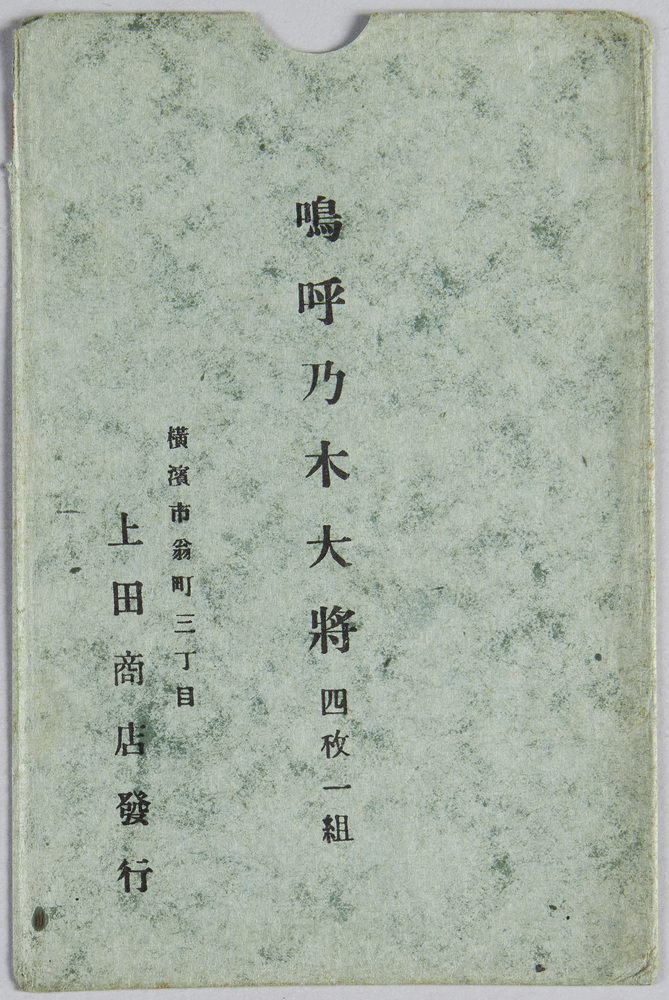 嗚呼乃木大將 四枚一組
橫濱市翁町三丁目
上田商店發行